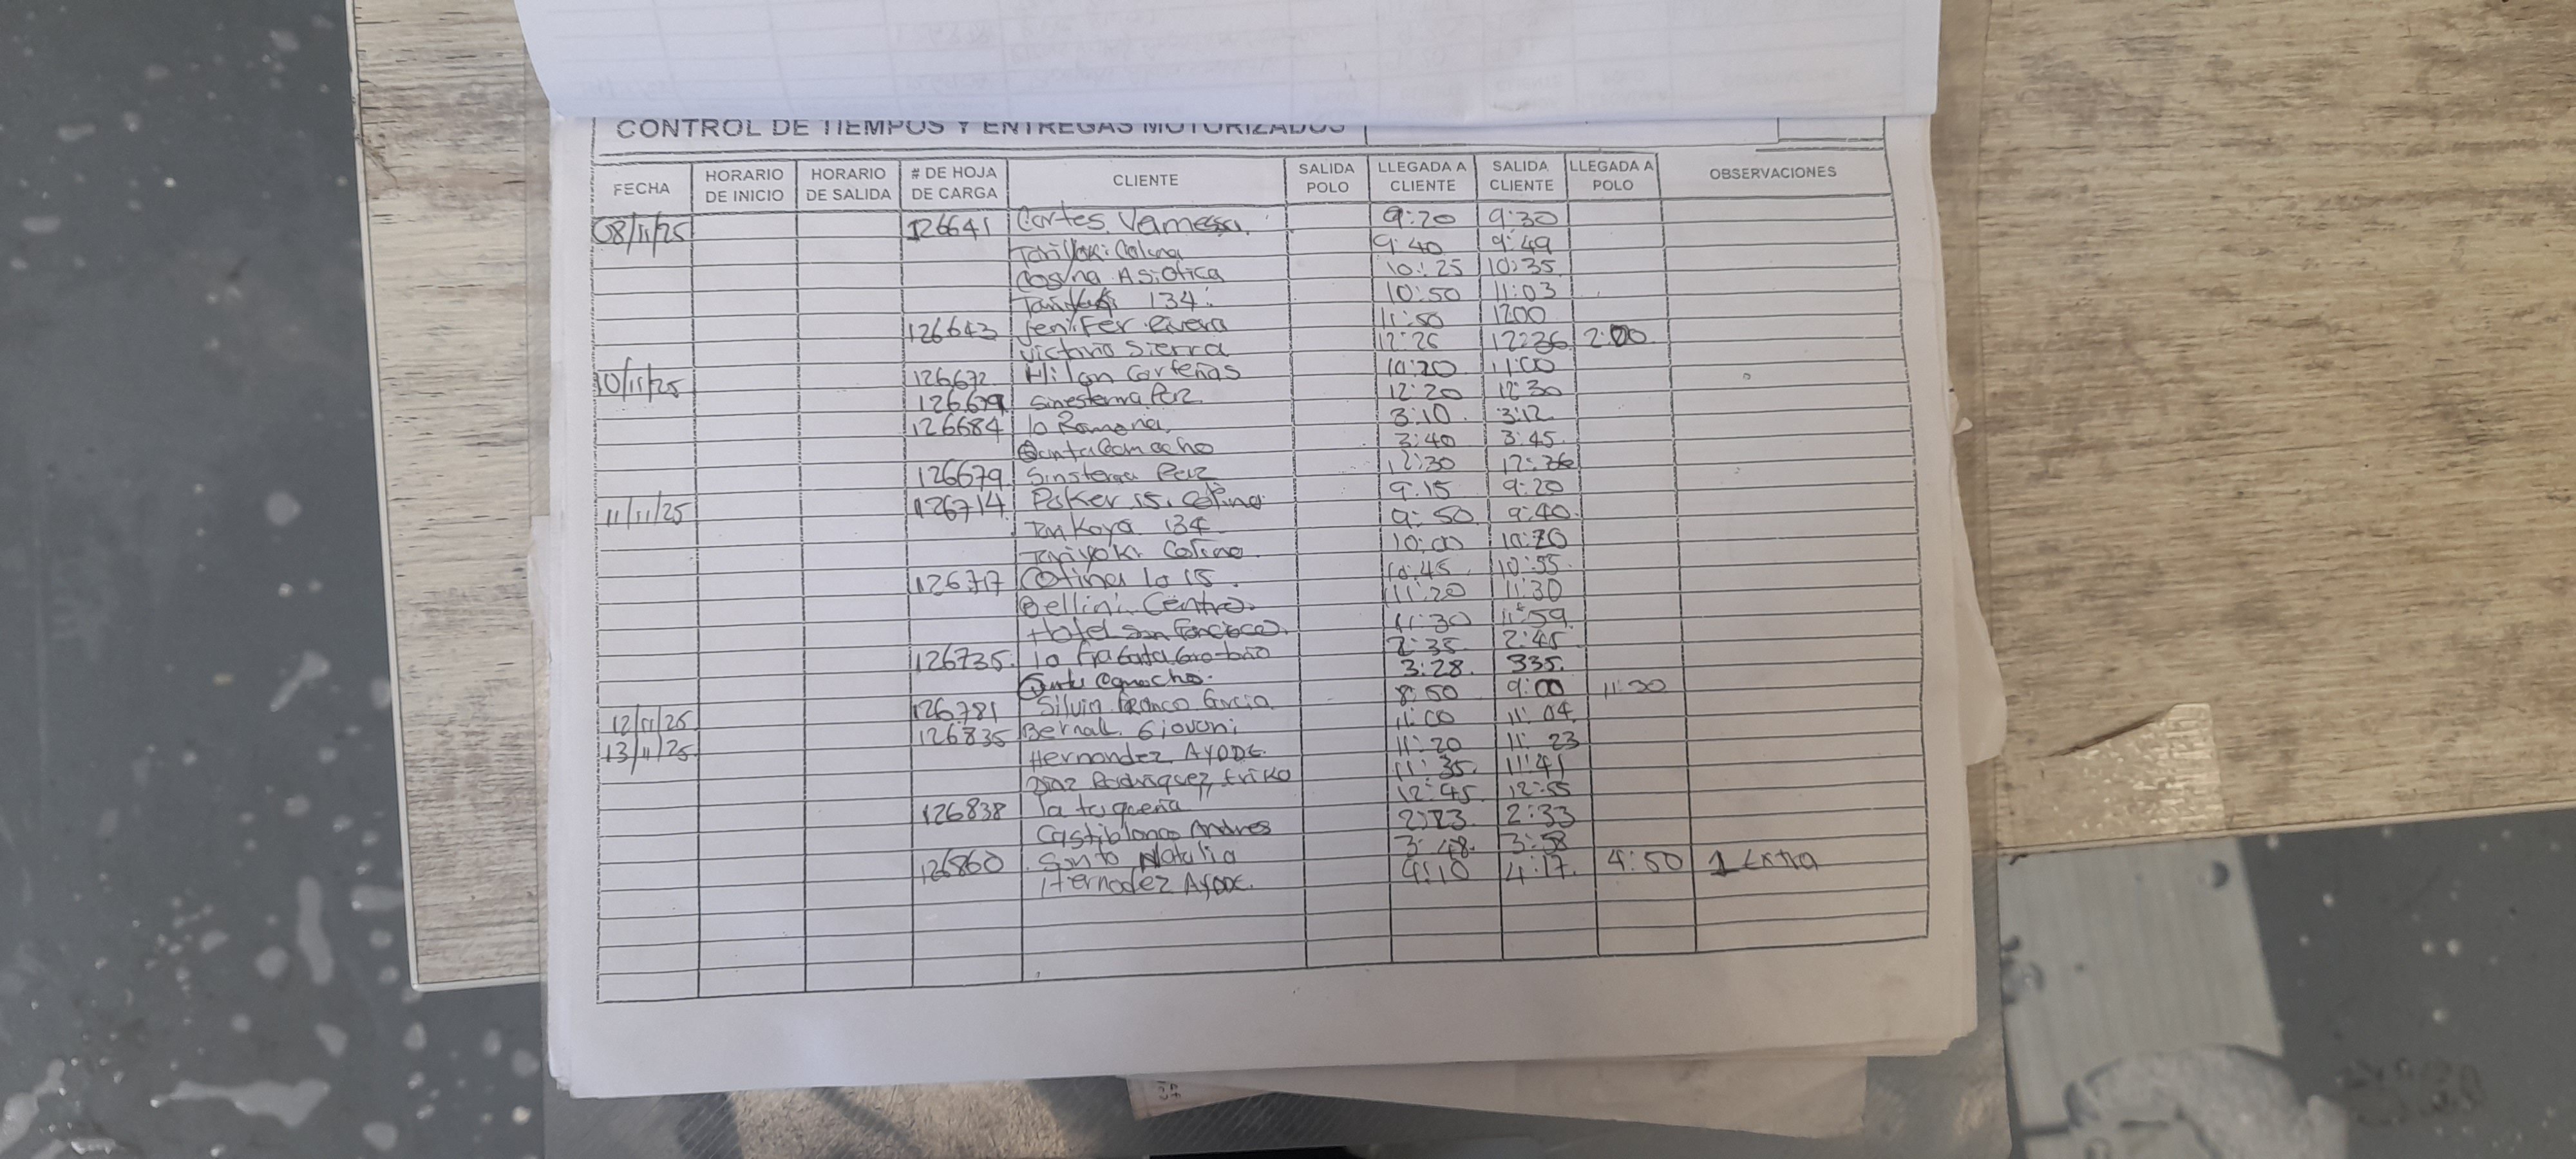 CONTROL DE TIEMPOS Y ENTREGAS MOTORIZADOS
FECHA HORARIO DE INICIO HORARIO DE SALIDA # DE HOJA DE CARGA CLIENTE SALIDA POLO LLEGADA A CLIENTE SALIDA CLIENTE LLEGADA A POLO OBSERVACIONES
08/11/25 126641 Cortes Vanessa. 9:20 9:30
Tariyaki Colina 9:40 9:49
Asiatica 10:25 10:35
134. 10:50 11:03
126643 Jenifer Rivera 11:50 1200
Victoria Sierra 12:26 12:36 2:00
10/11/25 126672 Hilan 10:20 11:00
126679 Sinesterra Paz 12:20 12:30
126684 la Ramona. 3:10 3:12
Quinta Camacho 3:40 3:45
126679 Sinsterra Paz 12:30 12:36
11/11/25 126714 Poker 15. Colina 9:15 9:20
134 9:50 9:40
Tariyoki Colina 10:00 10:20
126717 Cotina la 15. 10:45 10:55
Bellini Centro. 11:20 11:30
Hotel San Francisco. 11:30 11:59
126735. la 2:35 2:45
Quinta Camacho. 3:28 335.
12/11/25 126781 Silvia Franco Garcia 8:50 9:00 11:30
13/11/25 126835 Bernal Giovani 11:00 11:04
Hernandez AYDDE 11:20 11:23
Diaz Rodriguez Eriko 11:35 11:41
126838 la 12:45 12:55
Castiblanco Andres 2:23 2:33
126860 Natalia 3:48 3:58
Hernodez AYDDE. 4:10 4:17. 4:50 1 Extra